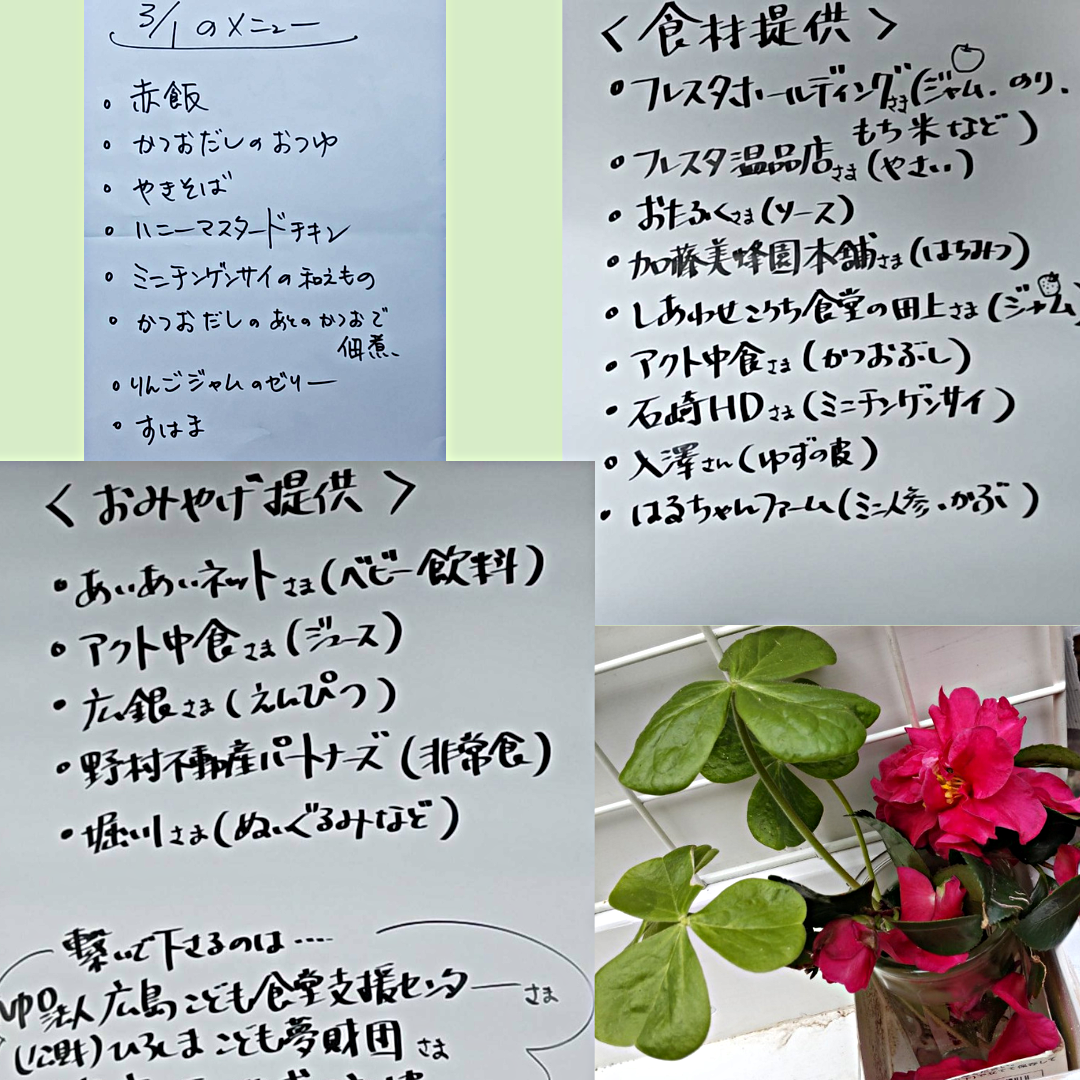 3/1のメニュー
• 赤飯
• かつおだしのおつゆ
• やきそば
• ハニーマスタードチキン
• ミニチンゲンサイの和えもの
• かつおだしのあとのかつおで
佃煮、
• りんごジャムのゼリー
• すはま
<食材提供>
• フレスタホールディングさま(ジャム.のり.
もち米など)
• フレスタ温品店さま(やさい)
• おたふくさま(ソース)
• 加藤美蜂園本舗さま(はちみつ)
• しあわせこうち食堂の田上さま(ジャム)
• アクト中食さま(かつおぶし)
• 石崎HDさま(ミニチンゲンサイ)
• 入澤さん(ゆずの皮)
• はるちゃんファーム(ミニ人参.かぶ)
<おみやげ提供>
• あいあいネットさま(ベビー飲料)
• アクト中食さま(ジュース)
• 広銀さま(えんぴつ)
• 野村不動産パートナーズ(非常食)
• 堀川さま(ぬいぐるみなど)
繋いで下さるのは....
法人広島こども食堂支援センターさま
(公財)ひろしまこども夢財団さま